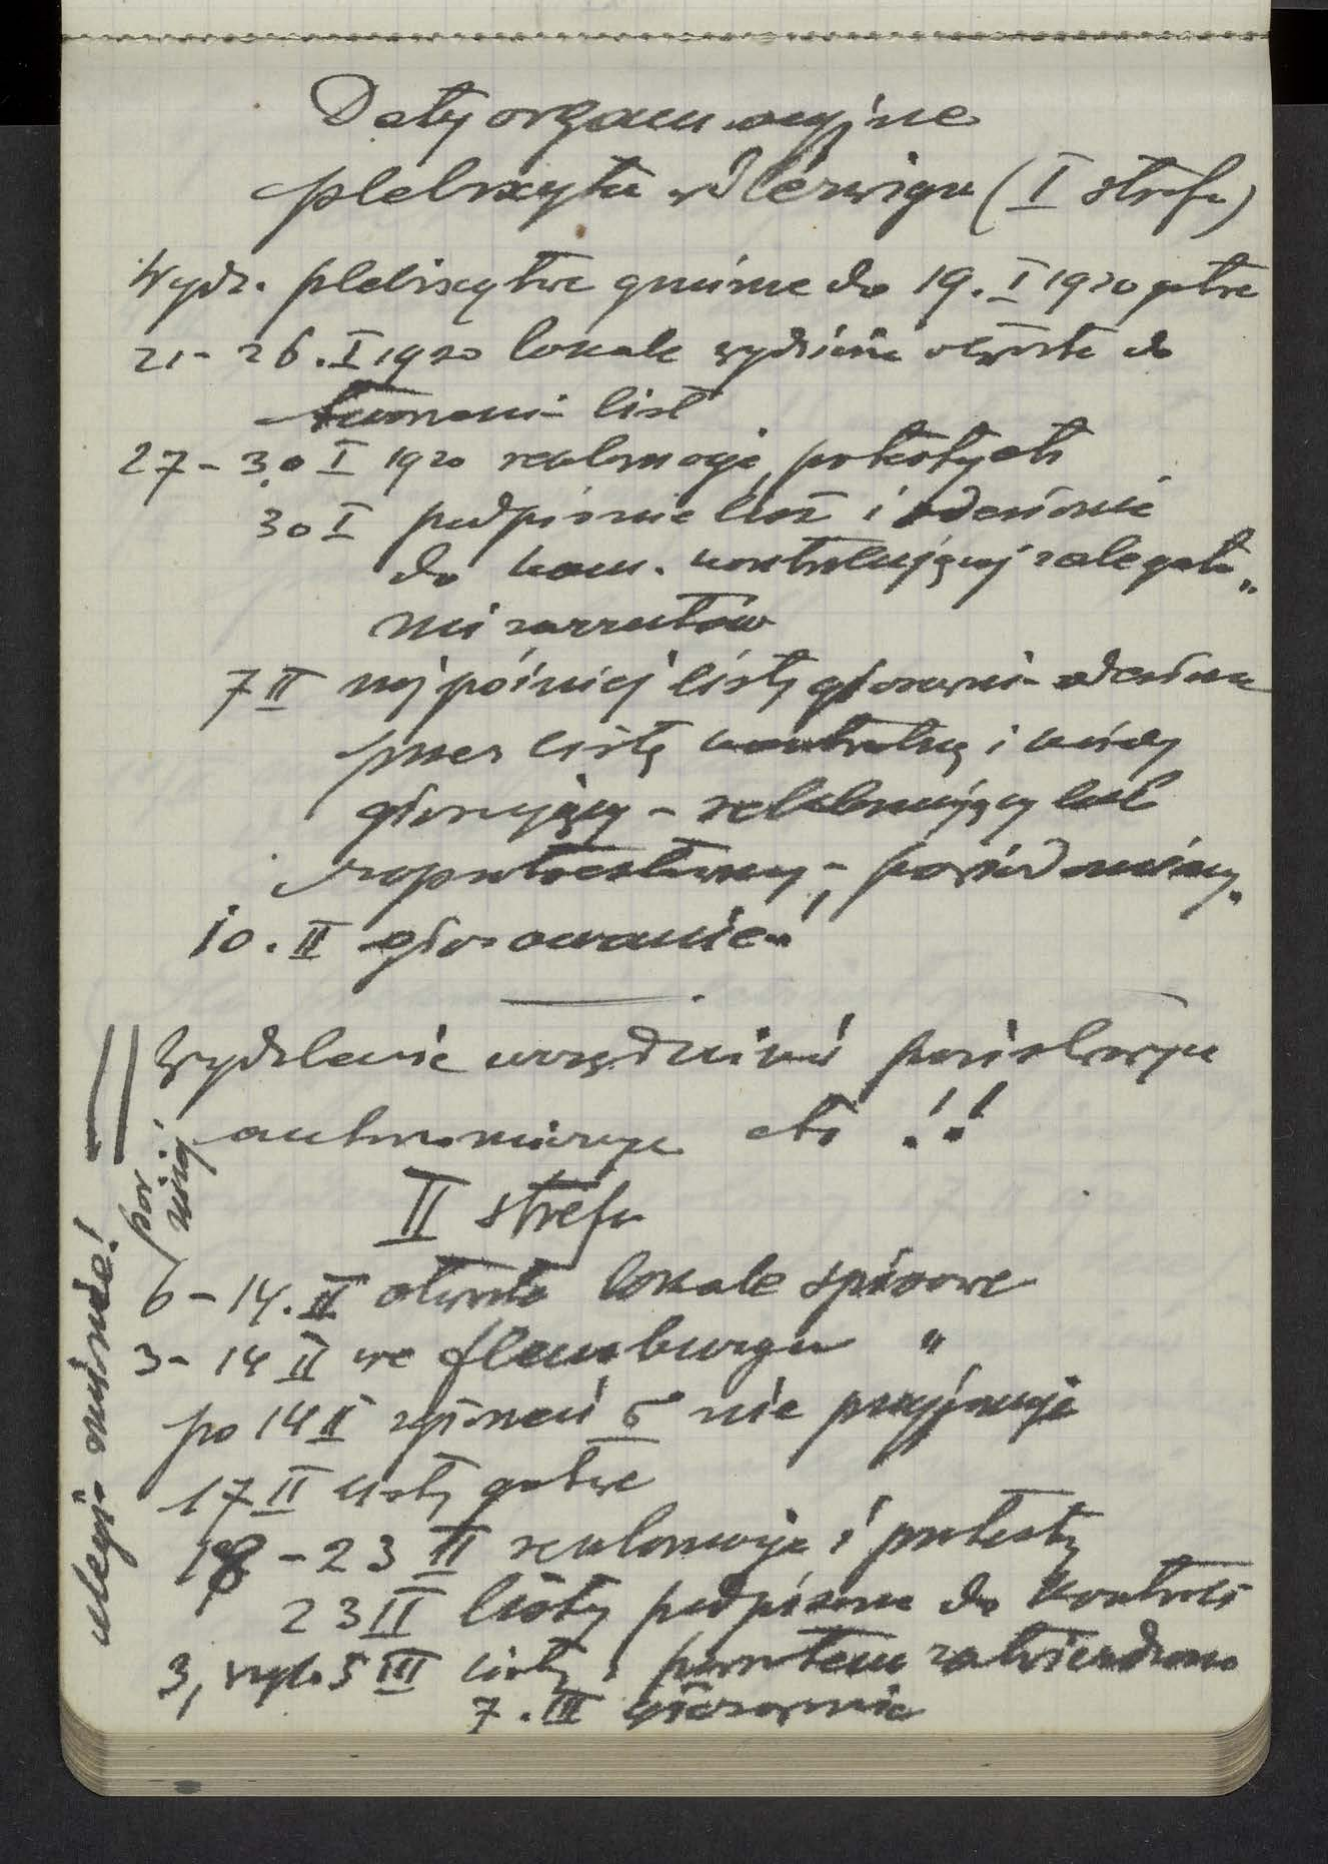 Daty organizacyjne
plebiscytu w Szlezwigu (I strefa)
Wydz. plebiscytwe gminne do 19. I 1920 gotwe
21 - 26. I 1920 lokale otwarte do
tworzenia list
27 - 30 I 1920 reklamacje, protestych
30 I podpisanie list i odesłanie
do kom. kontrolującej załegato
mi zarzutów
7 II najpóźniej listy głosowania odesłane
przez listę kontrolną i każdy
głosujący - reklamujący lub
zaprotestowany,
10. II głosowanie
Wydalenie urzędników państwowych
autonomicznych etc !!
II strefa
6 - 14. II otwarte lokale spisowe
3 - 14 II we Flensburgu "
po 14 II zgłoszeń nie przyjmuje
17 II listy gotwe
18 - 23 II reklamacje i protesty
23 II listy podpisane do Kontroli
5 III listy z powrotem zatwierdzone
7. III głosowanie